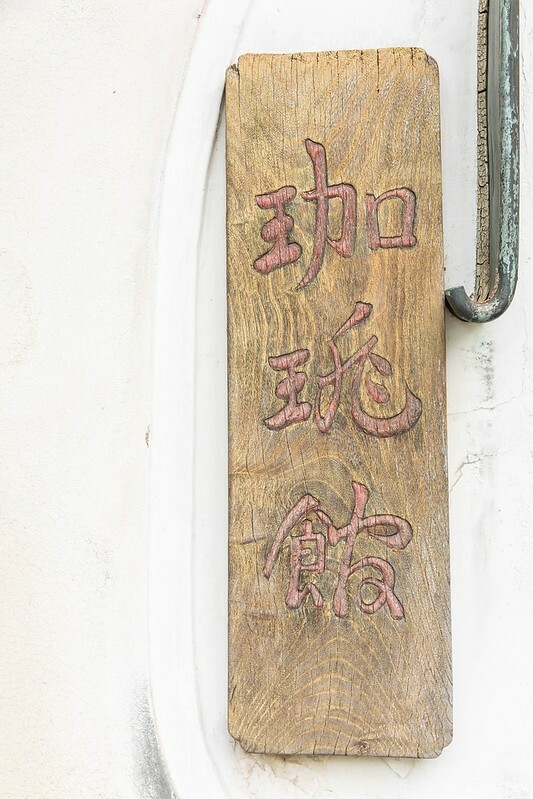 珈琲館